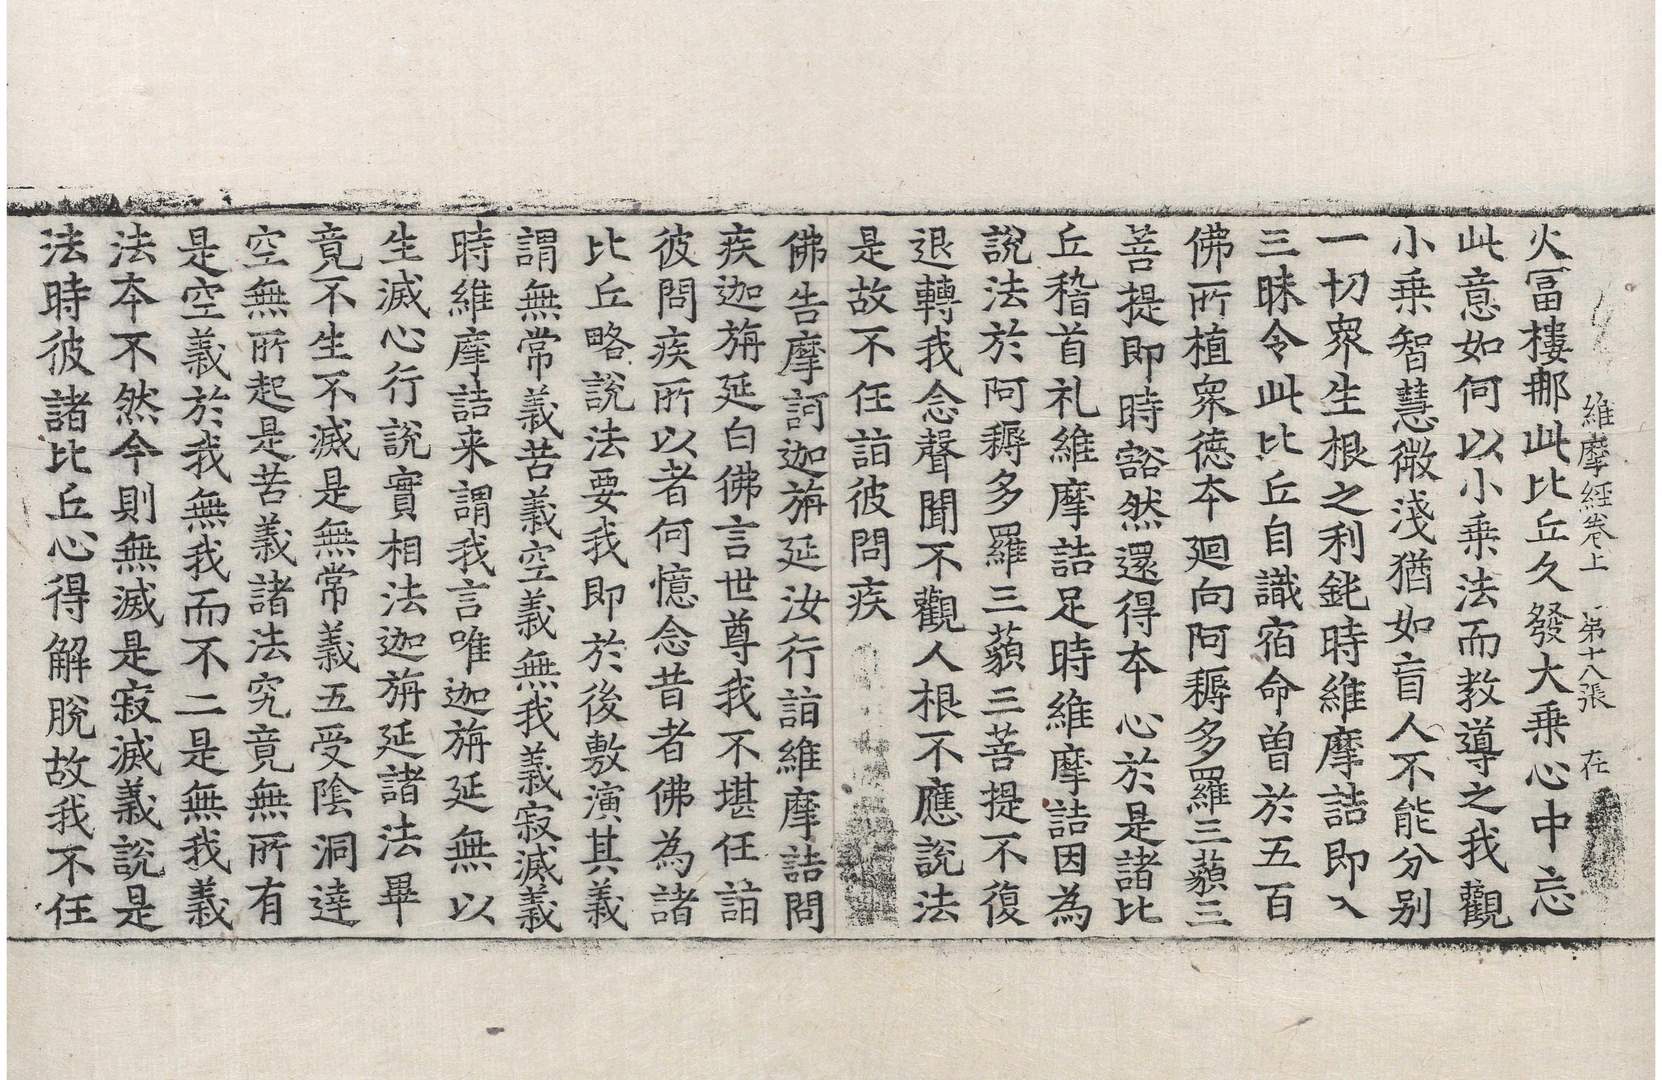 維摩經卷上 第十八張 在
火冨樓那此比丘久發大乘心中忘
此意如何以小乘法而教導之我觀
小乘智慧微淺猶如盲人不能分别
一切衆生根之利鈍時維摩詰即入
三昧令此比丘自識宿命曾於五百
佛所植衆德夲廻向阿耨多羅三藐三
菩提即時豁然還得夲心於是諸比
丘稽首礼維摩詰足時維摩詰因為
說法於阿耨多羅三藐三菩提不復
退轉我念聲聞不觀人根不應說法
是故不任詣彼問疾
佛告摩訶迦旃延汝行詣維摩詰問
疾迦旃延白佛言世尊我不堪任詣
彼問疾所以者何憶念昔者佛為諸
比丘略說法要我即於後敷演其義
謂無常義苦義空義無我義寂滅義
時維摩詰来謂我言唯迦旃延無以
生滅心行說實相法迦旃延諸法畢
竟不生不滅是無常義五受陰洞達
空無所起是苦義諸法究竟無所有
是空義於我無我而不二是無我義
法夲不然今則無滅是寂滅義說是
法時彼諸比丘心得解脫故我不任